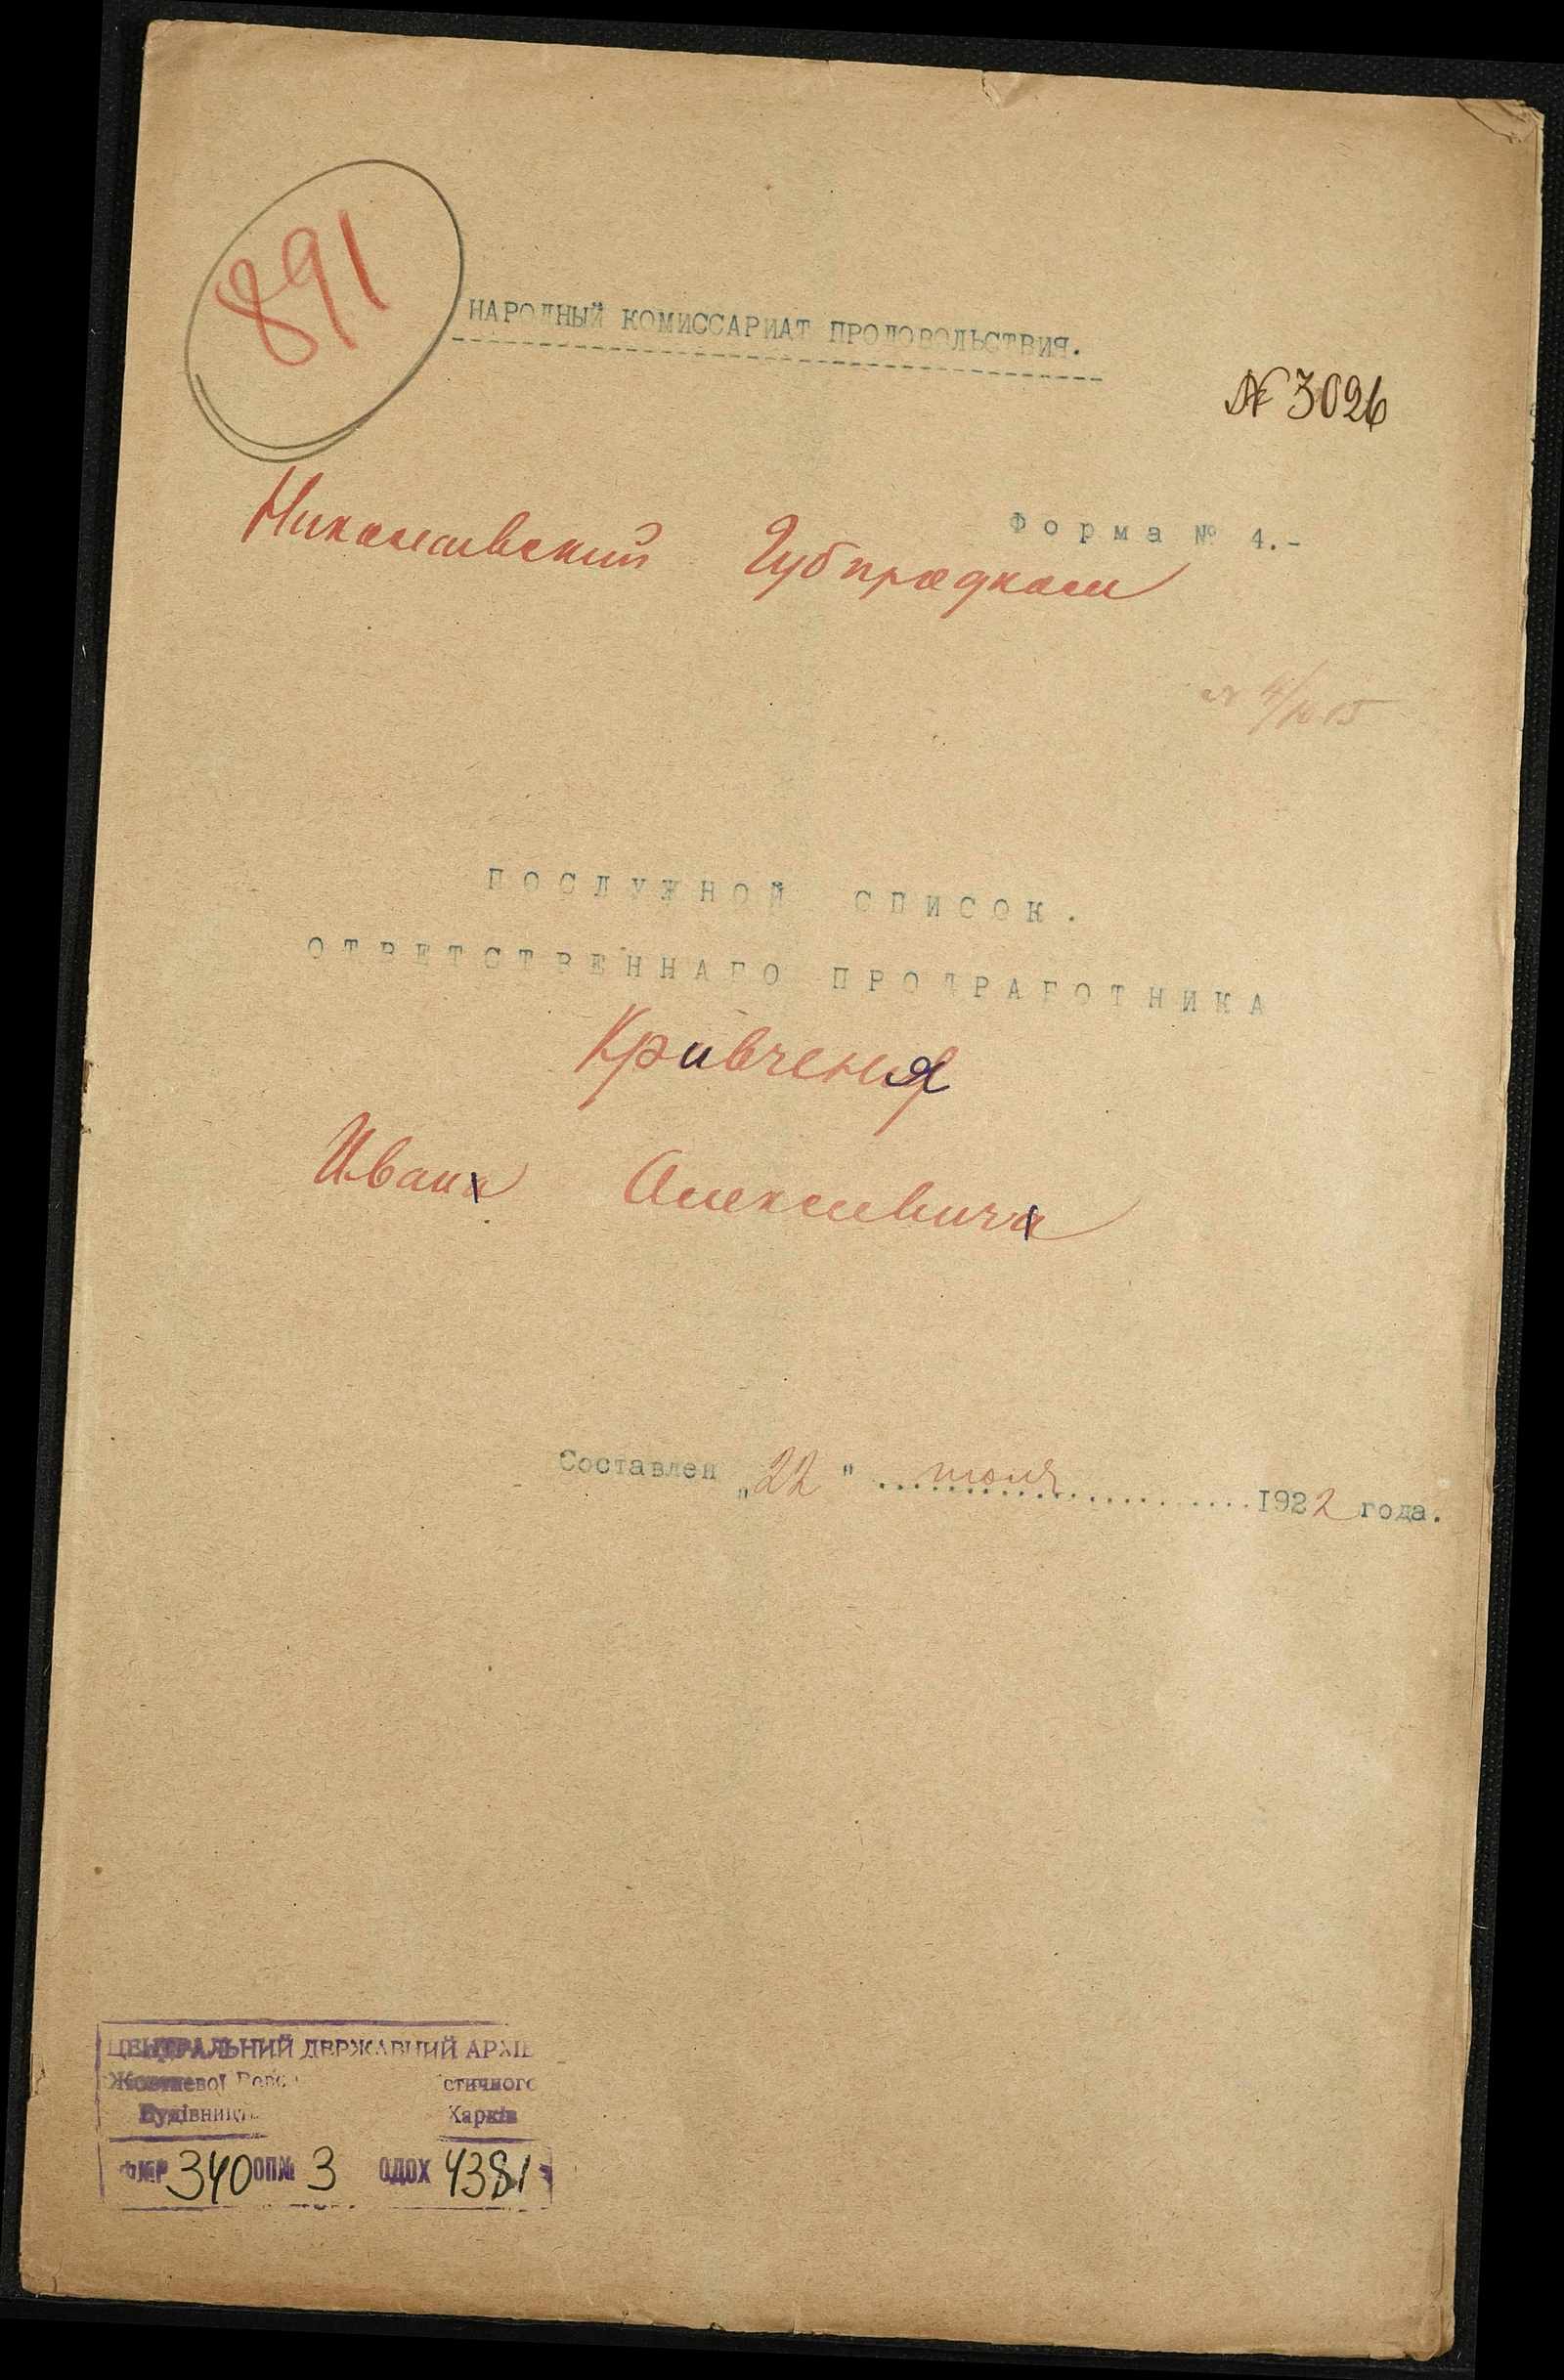 891
НАРОДНЫЙ КОМИССАРИАТ ПРОДОВОЛЬСТВИЯ.
№ 3026
Форма № 4.-
Николаевский Губпродком
ПОСЛУЖНОЙ СПИСОК.
ОТВЕТСТВЕННАГО ПРОДРАБОТНИКА
Кривченя
Иван Алексеевич
Составлен „22" июля 1922 года.
ЦЕНТРАЛЬНИЙ ДЕРЖАВНИЙ АРХІВ
Жовтневої стичного
Будівниц Харків
Ф№Р 340 ОП№ 3 ОДОХ 4381